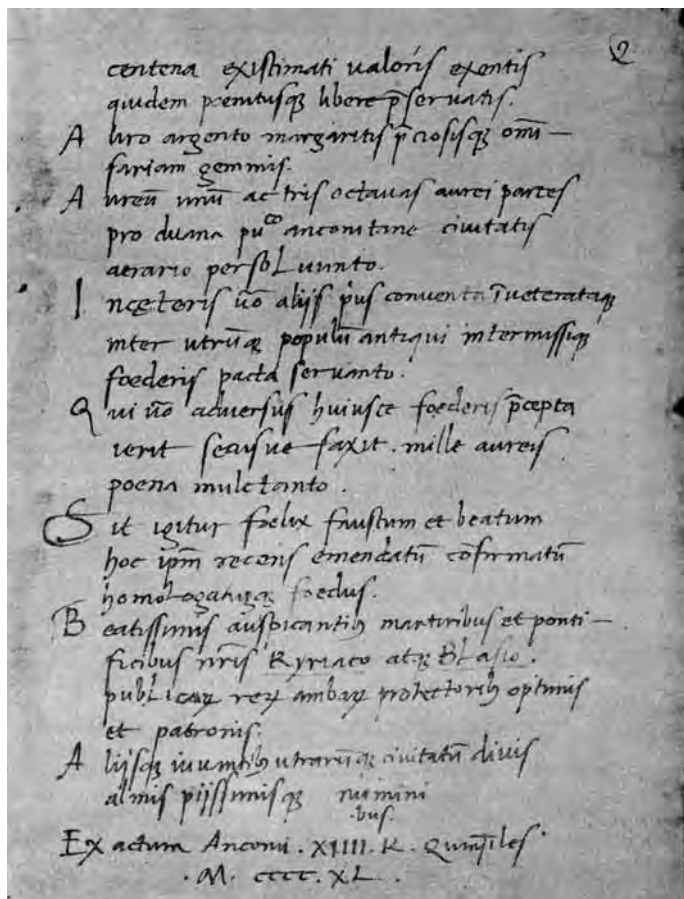 2
centena existimati ualoris exentis
quidem penitusqꝫ libere p̄seruatis.
A uro argento margaritis p̄ciosisqꝫ om̄i—
fariam gemmis.
A ureū unū ac tris octauas aurei partes
pro duana puᶜᵒ anconitane ciuitatis
aerario persoluunto.
I ncęteris ūo alijs p̍us conuenta īueterataqꝫ
inter utrūqꝫ populū antiqui intermissiqꝫ
foederis pacta seruanto.
Q ui ūo aduersus huiusce foederis p̄cepta
ierit secusue faxit. mille aureis
poena mulctanto.
S it igitur foelix faustum et beatum
hoc ip̄m recens emendatū cōfirmatū
homologatūqꝫ foedus.
B eatissimis auspicantibꝫ martiribus et ponti—
ficibus nr̄is Kyriaco atqꝫ Blasio.
publicaꝝ reꝝ ambaꝝ protectoribꝫ optimis
et patronis.
A lijsqꝫ iuuantibꝫ utrarūqꝫ ciuitatū diuis
almis pijssimisqꝫ numini
bus.
Ex actum Anconi. XIIII. K. Quint̄iles.
. M. cccc. XL .